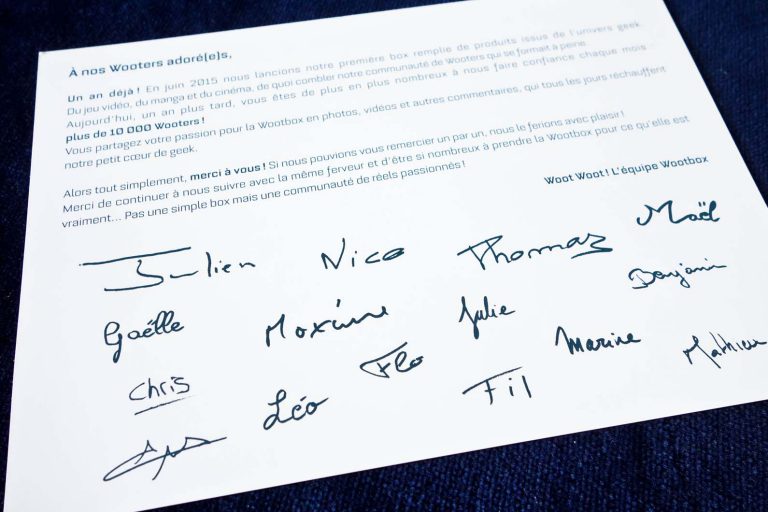 À nos Wooters adoré(e)s,
Un an déjà ! En juin 2015 nous lancions notre première box remplie de produits issus de l'univers geek.
Du jeu vidéo, du manga et du cinéma, de quoi combler notre communauté de Wooters qui se formait à peine.
Aujourd'hui, un an plus tard, vous êtes de plus en plus nombreux à nous faire confiance chaque mois :
plus de 10 000 Wooters !
Vous partagez votre passion pour la Wootbox en photos, vidéos et autres commentaires, qui tous les jours réchauffent
notre petit cœur de geek.
Alors tout simplement, merci à vous ! Si nous pouvions vous remercier un par un, nous le ferions avec plaisir !
Merci de continuer à nous suivre avec la même ferveur et d'être si nombreux à prendre la Wootbox pour ce qu'elle est
vraiment... Pas une simple box mais une communauté de réels passionnés !
Woot Woot ! L'équipe Wootbox
Julien Nico Thomas Maël
Gaëlle Maxime Julie Benjamin
Chris Flo Marine Mathieu
Léo Fil